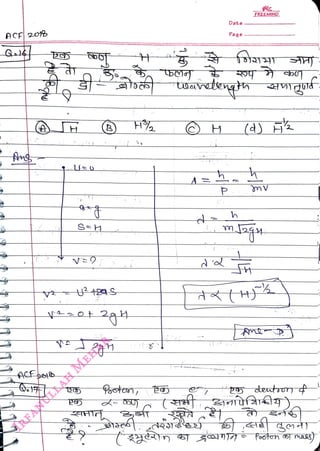 FREEMIND
Date
Page
ACF 2018
Q.16 एक कण H ऊँ से गिराया जाता
है तो ऊँ० के फलन के रूप में कण
की डी-ब्रोग्ली wavelength समानुपाती
है ?
(A) √H (B) H^3/2 (C) H (d) H^-1/2
Ans -
U=0
a=g
S=H
v=?
v² = U²+2as
v² = 0 + 2gH
v = √2gH
λ = h/p = h/mv
λ = h/m√2gH
λ ∝ 1/√H
λ ∝ (H)^-1/2
Ans - D
ACF 2018
Q.17 एक Proton, एक e⁻, एक deutron व
एक α-कण (सभी
समान ऊर्जा रखते हैं। तो इनकी
डी-ब्रोग्ली की तुलना
है ? (ड्यूट्रॉन का द्रव्यमान = Proton का mass)
IRFANULLAH MEHAR